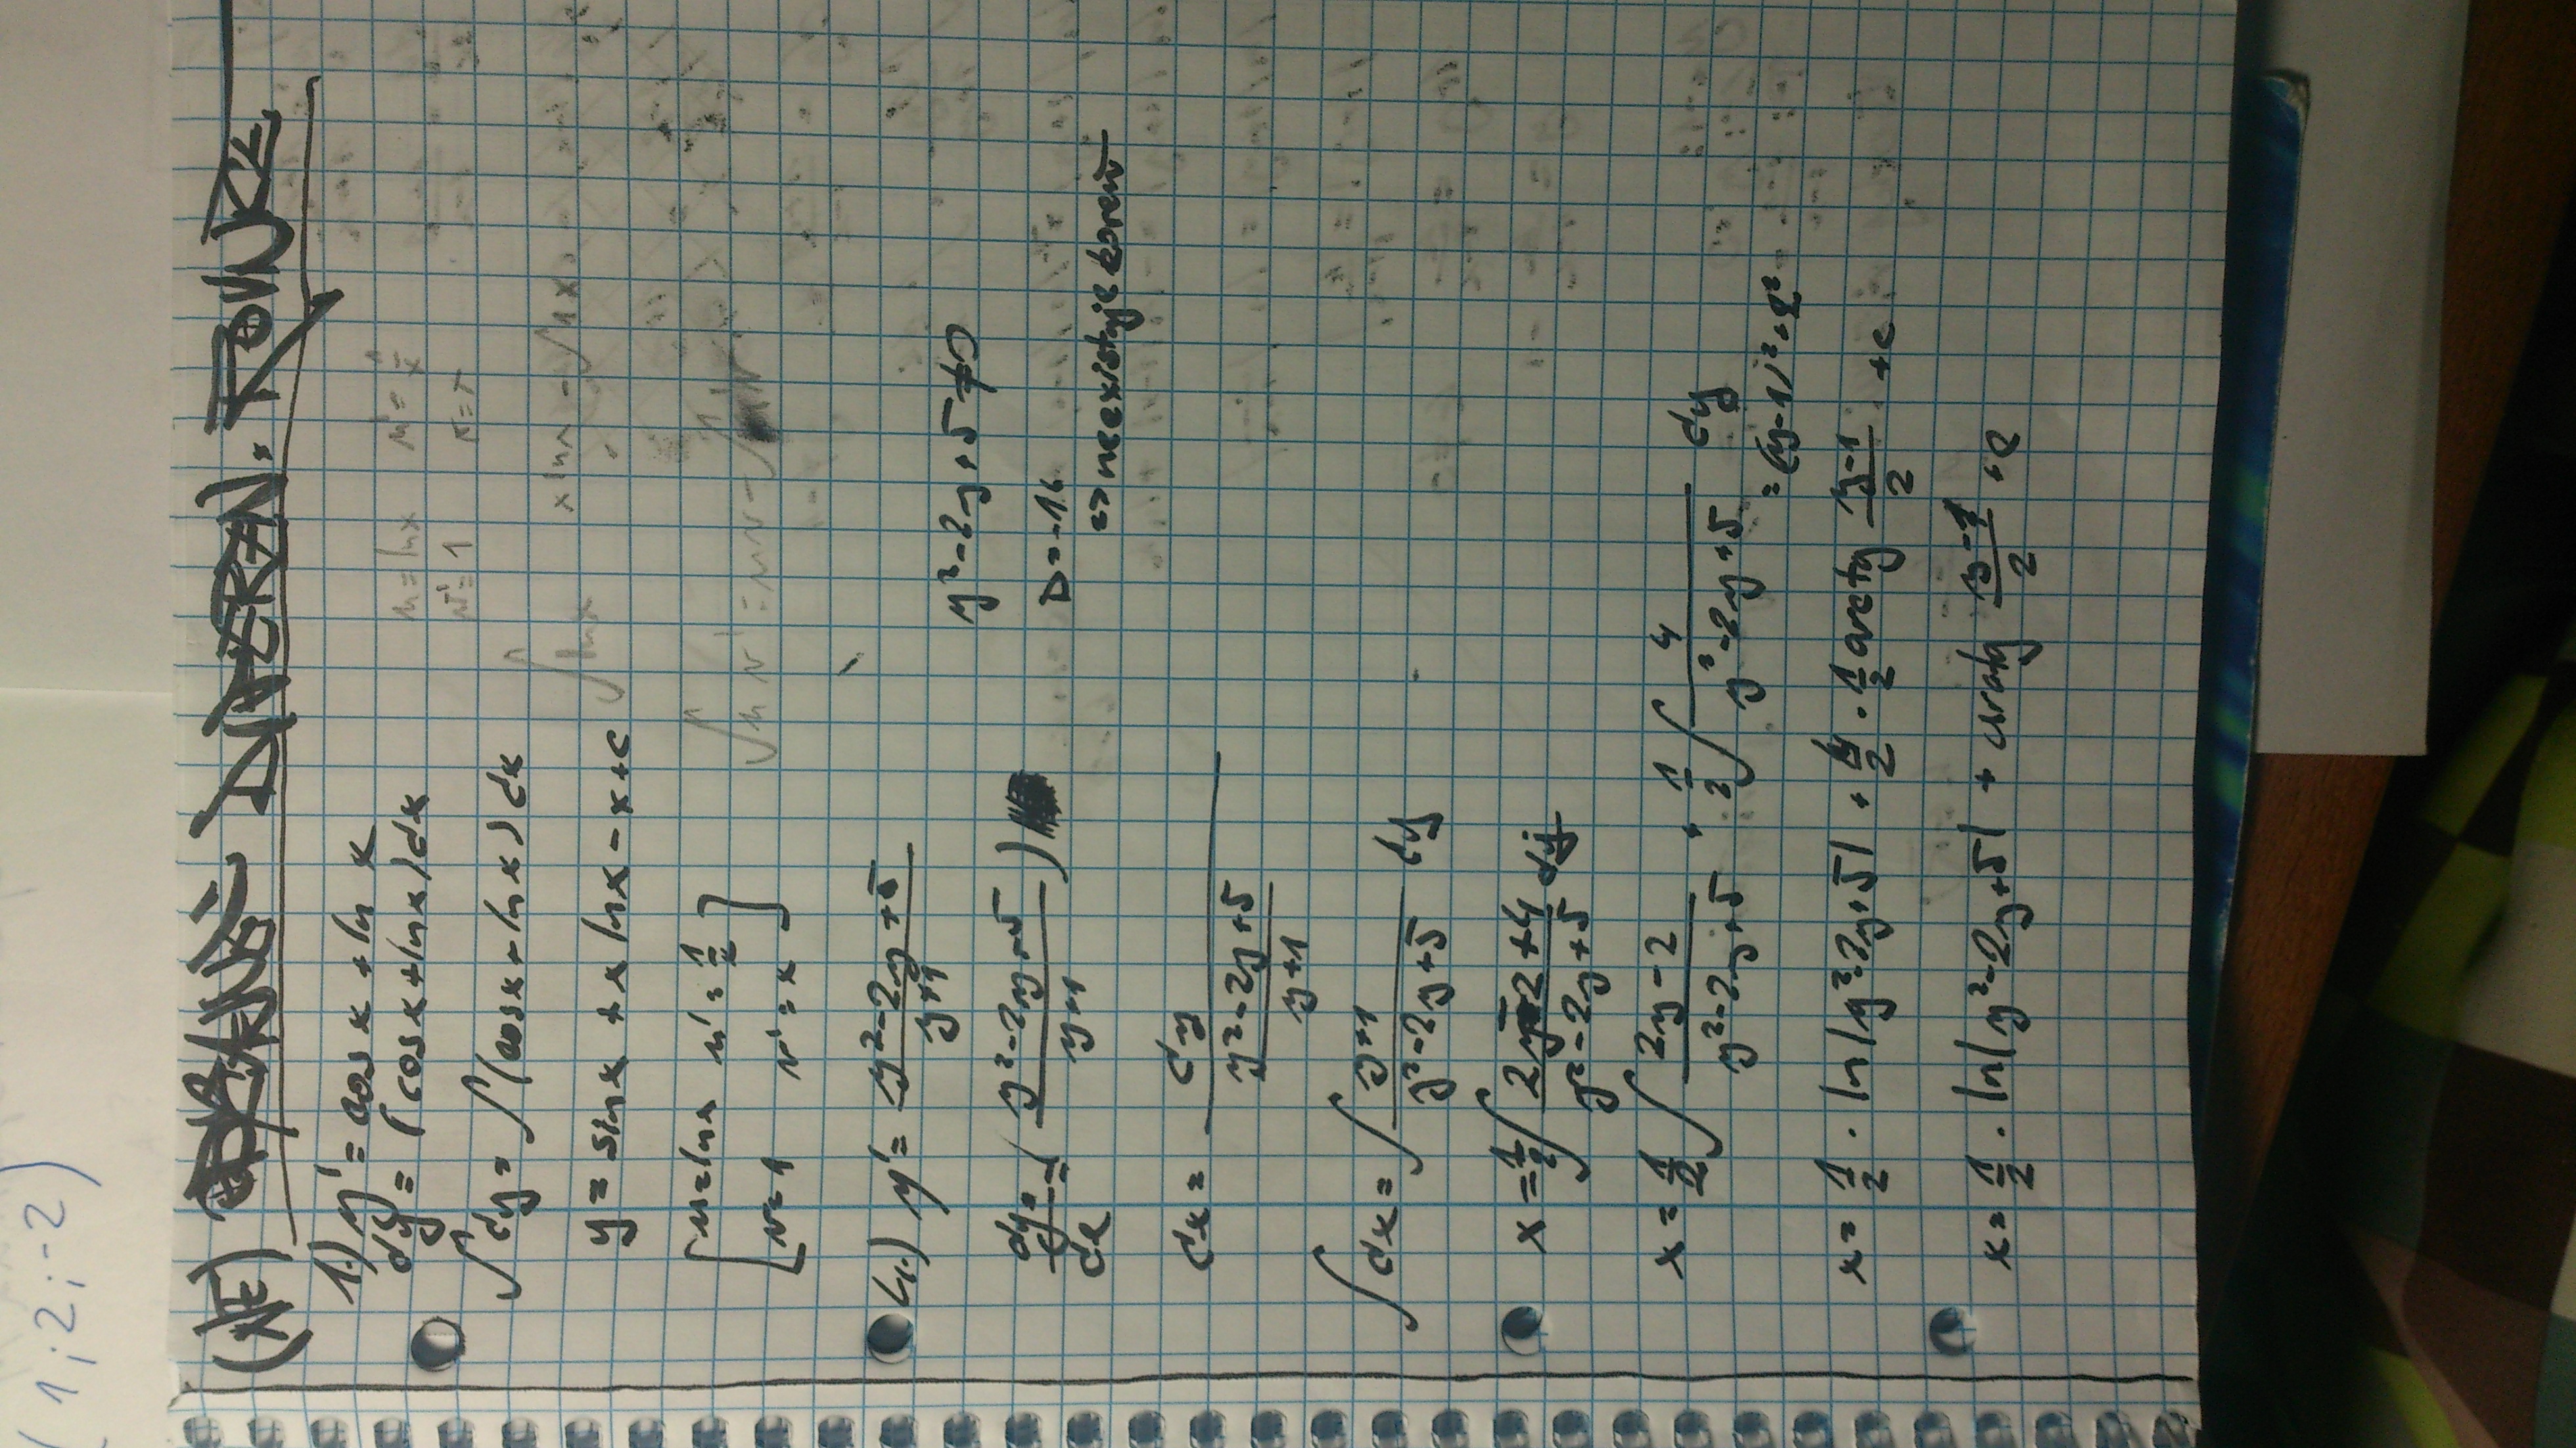 (1;2;-2)
(NE) DIFEREN. ROVNICE
1.) y' = cos x + ln x
dy = (cos x + ln x) dx
u = ln x u' = 1/x
v' = 1
∫dy = ∫(cos x + ln x) dx
∫ln x x ln x - ∫1x
y = sin x + x ln x - x + c
[u = ln x u' = 1/x
v = 1 v' = x]
∫u v' = uv - ∫
y' = (y² - 2y + 5)/(y+1)
y² - 2y + 5 ≠ 0
dy/dx = ((y² - 2y + 5)/(y+1))
D = -16
=> neexistuje koreň
dx = dy/((y² - 2y + 5)/(y+1))
∫dx = ∫ (y+1)/(y² - 2y + 5) dy
x = 1/2 ∫ (2y - 2 + 4)/(y² - 2y + 5) dy
x = 1/2 ∫ (2y - 2)/(y² - 2y + 5) + 1/2 ∫ 4/(y² - 2y + 5) dy
= (y-1)² + 2²
x = 1/2 · ln|y² - 2y + 5| + 4/2 · 1/2 arctg (y-1)/2 + c
x = 1/2 · ln|y² - 2y + 5| + arctg (y-1)/2 + c